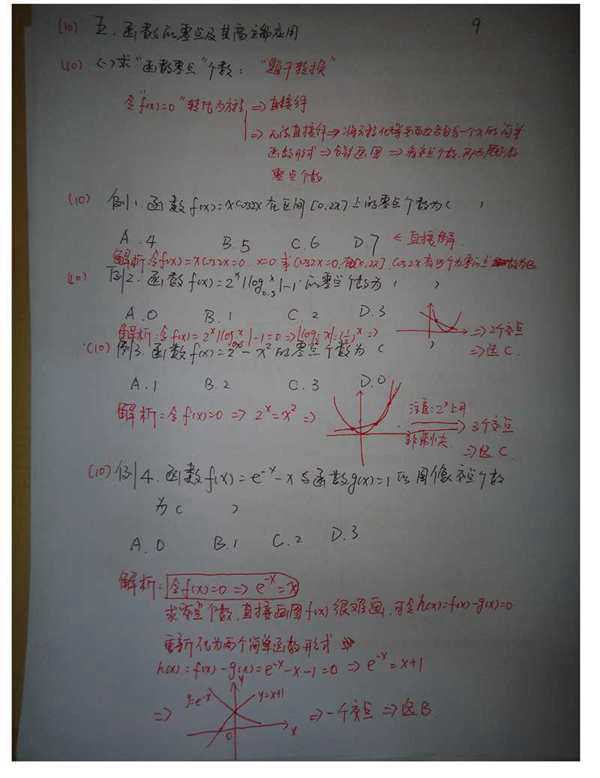 9
(10) 五. 函数的零点及其高端应用
(10) (一)求"函数零点"个数：“题干转换”
令"f(x)=0"转化为方程 ⇒ 直接解
⇒ 无法直接解 ⇒ 将方程化为等号两边各自有一个x的简单
函数形式 ⇒ 分别画图 ⇒ 看交点个数,即为题数
零点个数
(10) 例1. 函数f(x)=xcos2x在区间[0.2π]上的零点个数为( )
A.4 B.5 C.6 D.7 ← 直接解.
解析:令f(x)=xcos2x=0. x=0 或 cos2x=0,
(10) 例2. 函数f(x)=2^x|log_0.5 x|-1的零点个数为( )
A.0 B.1 C.2 D.3
解析:令f(x)=2^x|log x|-1=0⇒|log x|=(1/2)^x ⇒
⇒2个交点
⇒选C.
(10) 例3. 函数f(x)=2^x-x²的零点个数为( )
A.1 B.2 C.3 D.0
解析:令f(x)=0 ⇒ 2^x=x² ⇒
注意:2^x上升
非常快
⇒ 3个交点
⇒选C.
(10) 例4. 函数f(x)=e^-x-x与函数g(x)=1的图像交点个数
为( )
A.0 B.1 C.2 D.3
解析:令f(x)=0 ⇒ e^-x=x
求交点个数,直接画图f(x)很难画,可令h(x)=f(x)-g(x)=0
重新化为两个简单函数形式
h(x)=f(x)-g(x)=e^-x-x-1=0 ⇒ e^-x=x+1
⇒ y=e^-x y y=x+1 0 x ⇒一个交点 ⇒选B